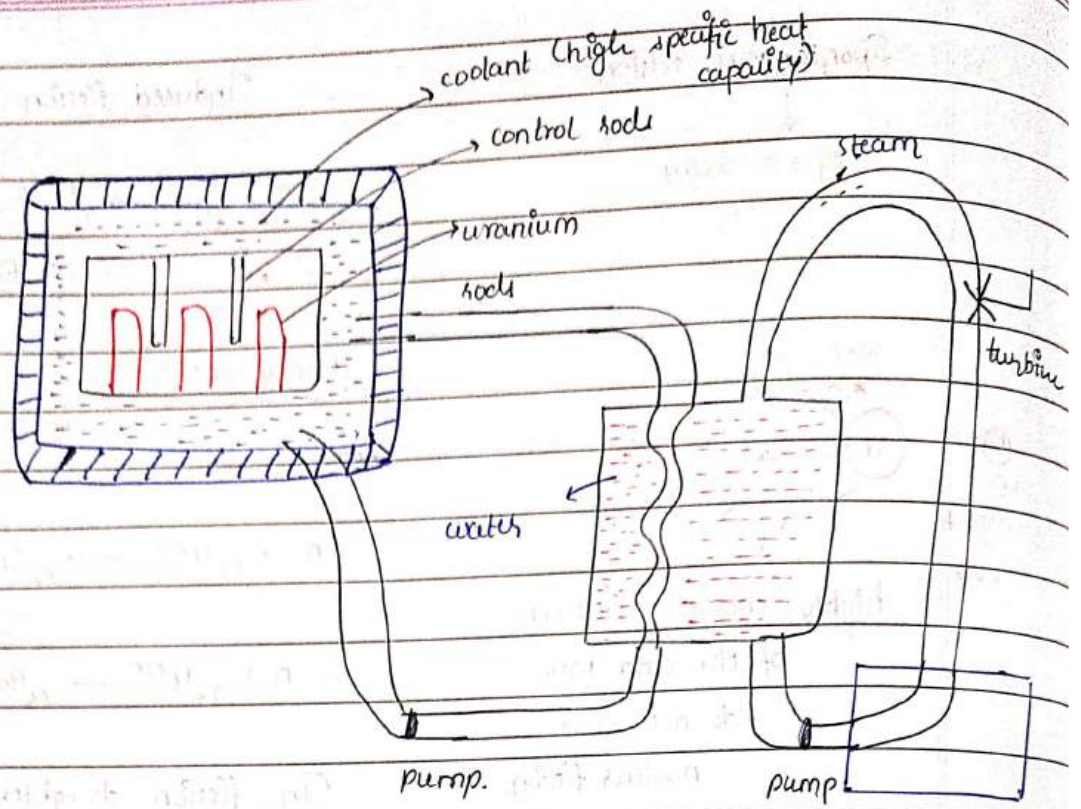 coolant (high specific heat
capacity)
control rods
steam
uranium
rods
turbine
water
pump.
pump